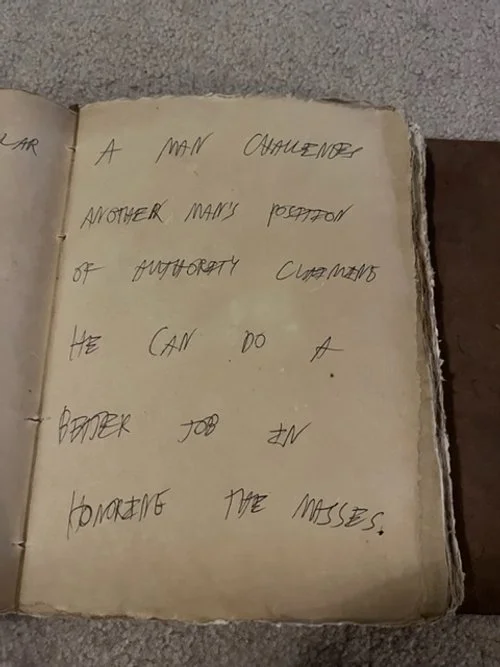 LAR
A MAN CHALLENGES
ANOTHER MAN'S POSITION
OF AUTHORITY CLAIMING
HE CAN DO A
BETTER JOB IN
HONORING THE MASSES.